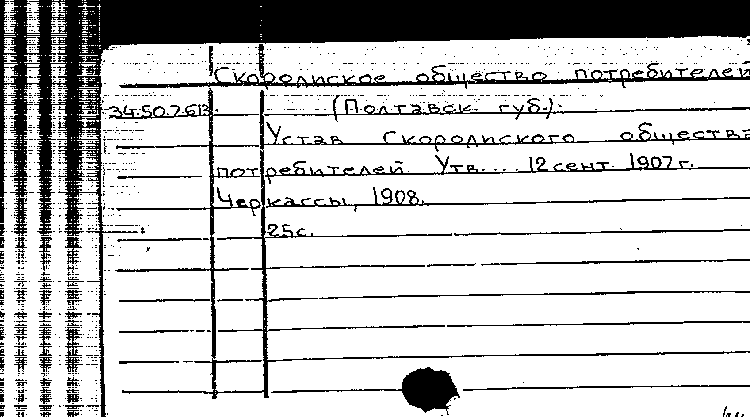 Скородиское общество потребителей
34.50.7.613. (Полтавск. губ.):
Устав Скородиского общества
потребителей. Утв... 12 сент. 1907 г.
Черкассы, 1908.
25 с.